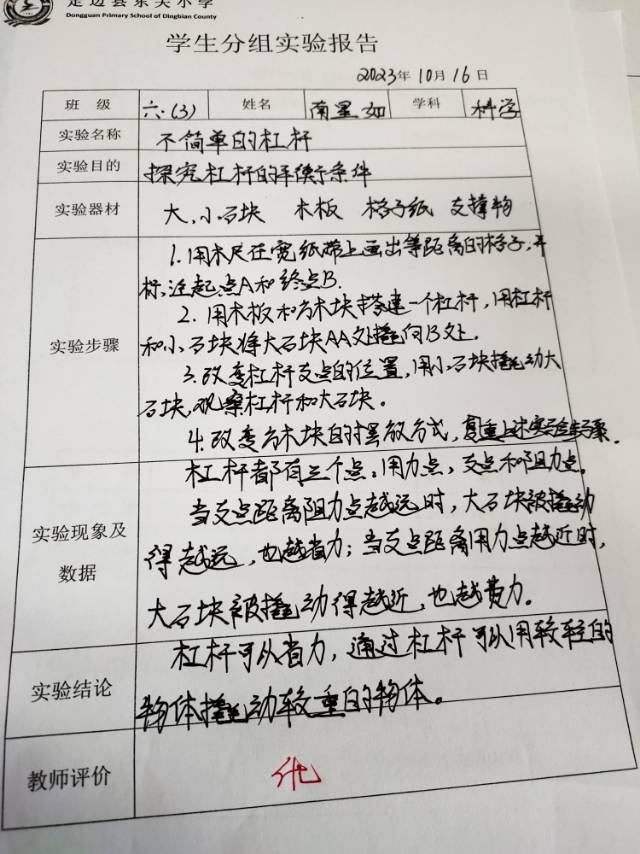 定边县东关小学
Dongguan Primary School of Dingbian County
学生分组实验报告
2023年10月16日
班 级 六.(3) 姓名 南星如 学科 科学
实验名称 不简单的杠杆
实验目的 探究杠杆的平衡条件
实验器材 大,小石块 木板 格子纸 支撑物
实验步骤
1.用米尺在宽纸带上画出等距离的格子,并
标注起点A和终点B.
2.用木板和方木块搭建一个杠杆,用杠杆
和小石块将大石块AA处撬向B处。
3.改变杠杆支点的位置,用小石块撬动大
石块,观察杠杆和大石块。
4.改变方木块的摆放方式,复重上述实验步骤.
实验现象及
数据
杠杆都有三个点,用力点,支点和阻力点.
当支点距离阻力点越远时,大石块被撬动
得越远,也越省力;当支点距离用力点越近时,
大石块被撬动得越近,也越费力.
实验结论
杠杆可以省力,通过杠杆可以用较轻的
物体撬动较重的物体。
教师评价 优